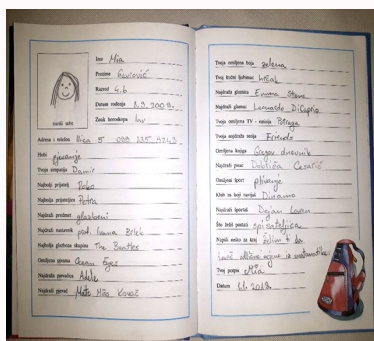 Ime Mia
Prezime
Razred 4.b
Datum rođenja 8.9.2009.
Znak horoskopa lav
Adresa i telefon Ilica 5
Hobi pjevanje
Tvoja simpatija Damir
Najbolji prijatelj Roko
Najbolja prijateljica Petra
Najdraži predmet glazbeni
Najdraži nastavnik prof. Ivana Brlek
Najbolja glazbena skupina The Beatles
Omiljena pjesma Ocean Eyes
Najdraža pjevačica Adele
Najdraži pjevač Mate Mišo Kovač
Tvoja omiljena boja zelena
Tvoj kućni ljubimac hrčak
Najdraža glumica Emma Stone
Najdraži glumac Leonardo DiCaprio
Tvoja omiljena TV - emisija Potraga
Tvoja najdraža serija Friends
Omiljena knjiga Gregov dnevnik
Najdraži pisac Dobriša Cesarić
Omiljeni šport plivanje
Klub za koji navijaš Dinamo
Najdraži športaš Dejan Lovren
Što želiš postati spisateljica
Napiši nešto za kraj želim ti da
imaš odličan uspjeh iz matematike
Tvoj potpis Mia
Datum